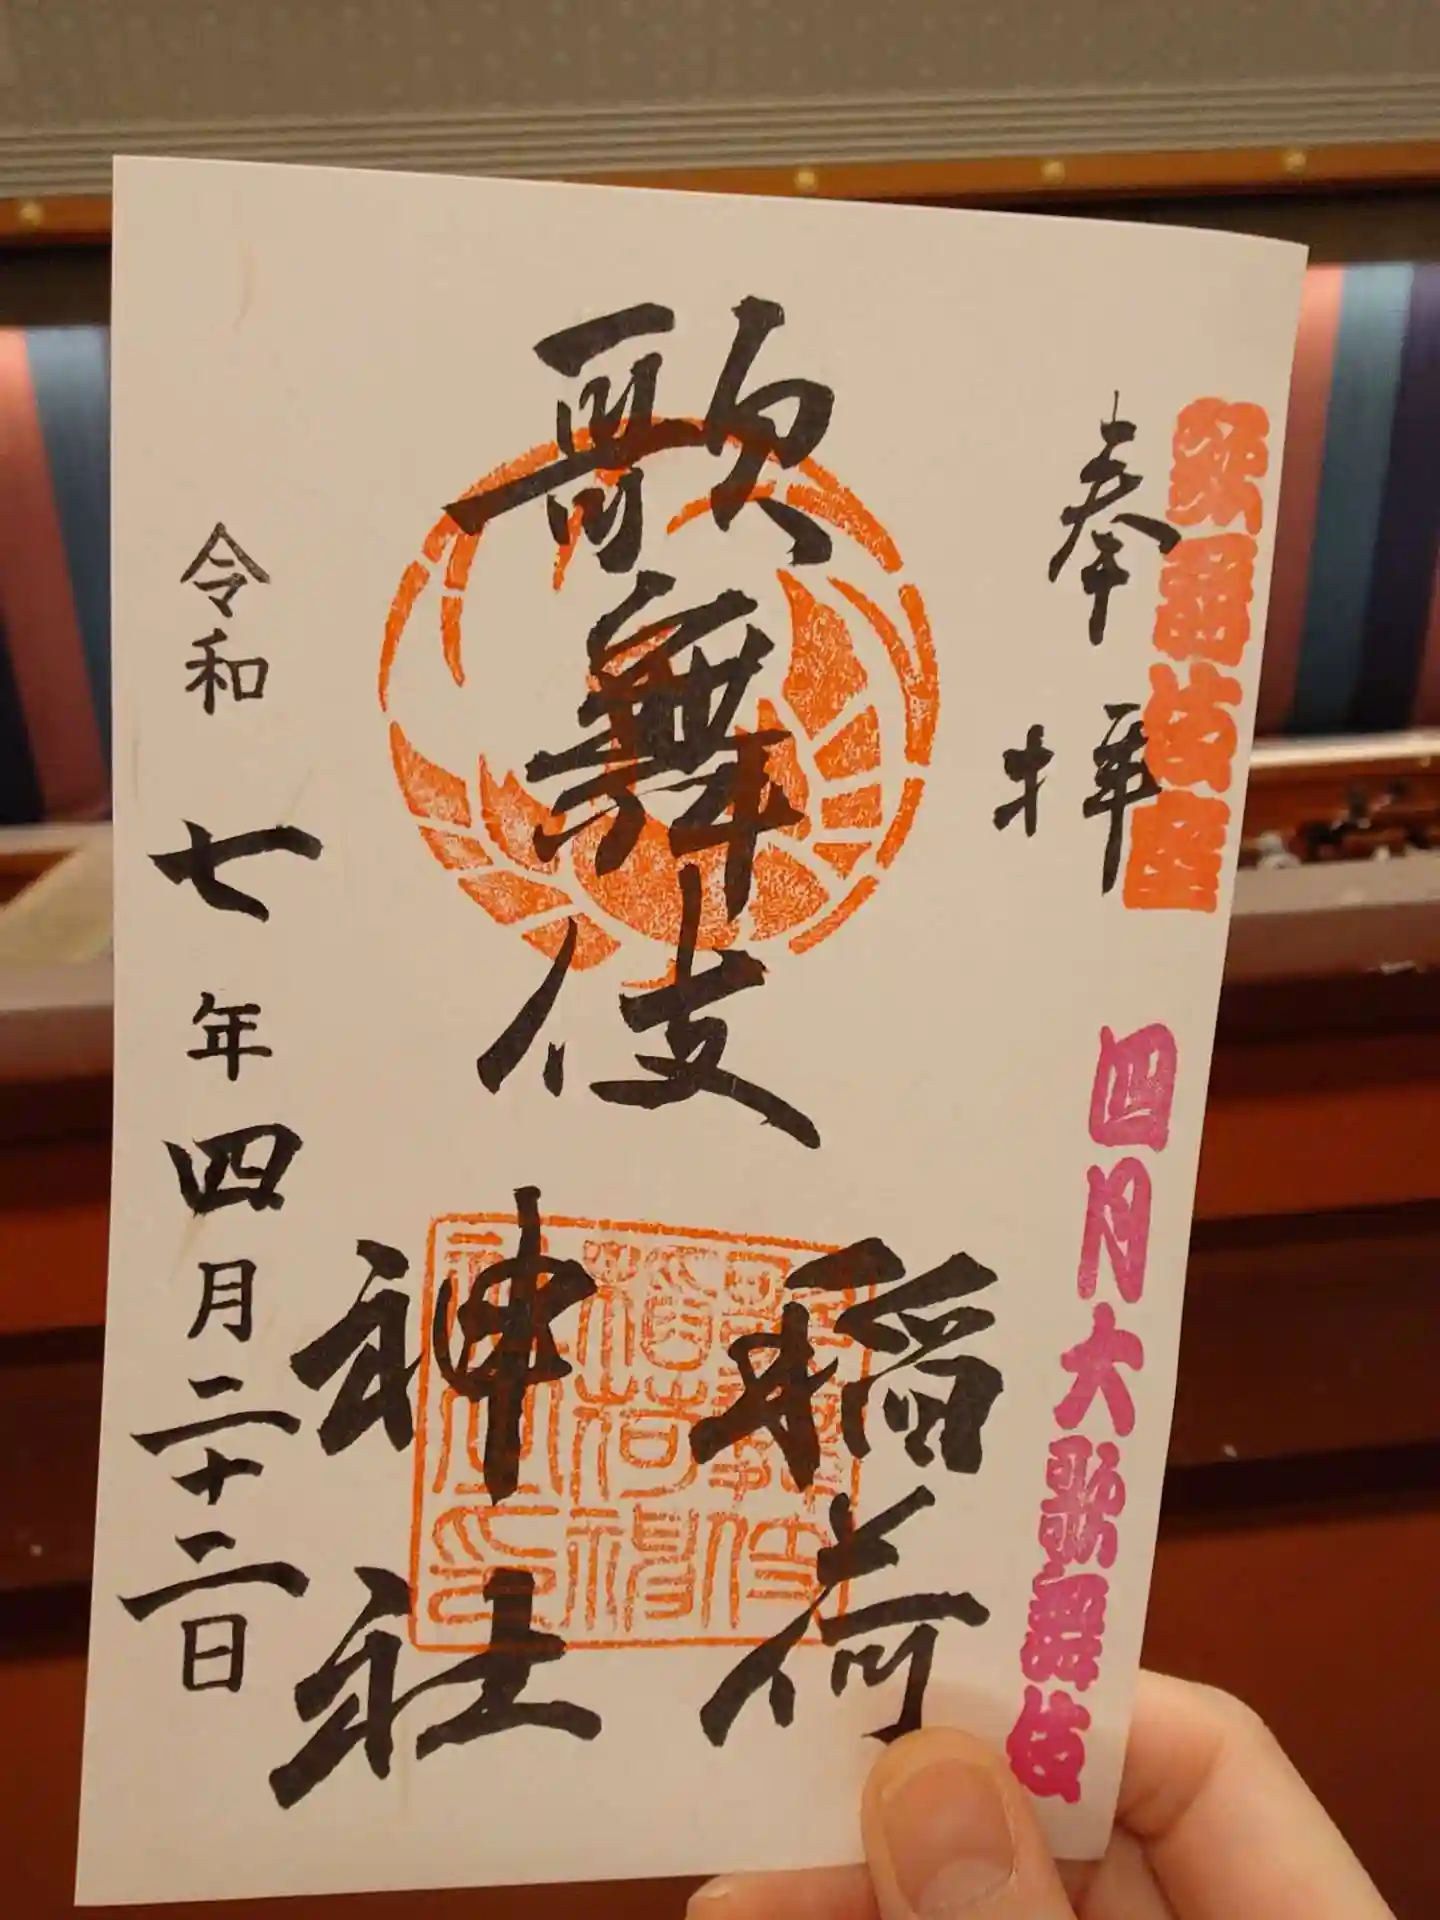 歌舞伎座
奉拝
四月大歌舞伎
歌舞伎
稲荷
神社
歌舞伎
稲荷神
社之印
令和七年四月二十二日